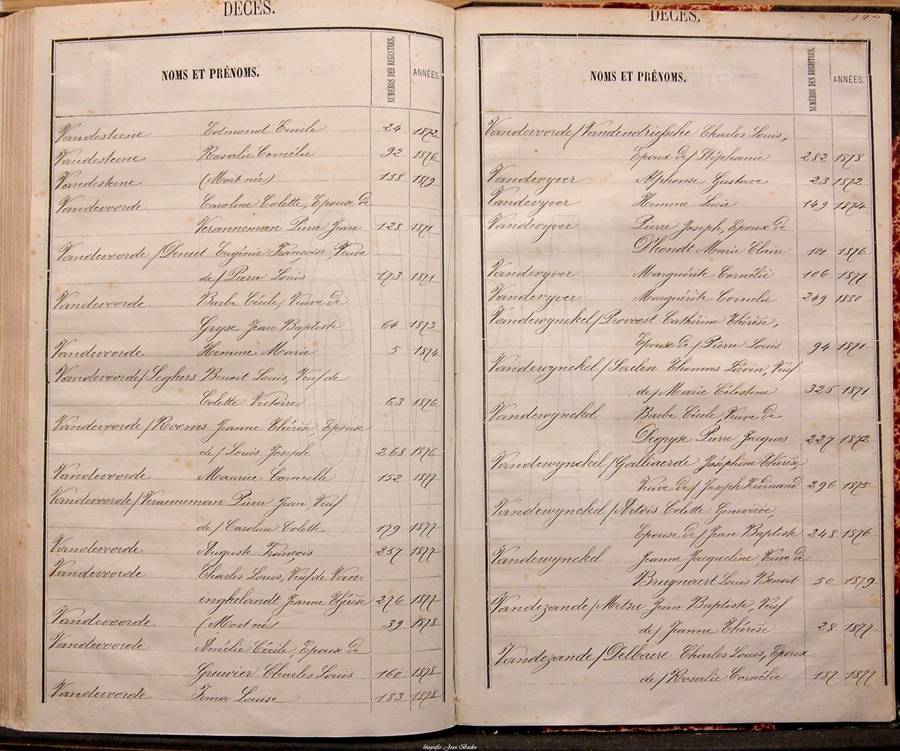 DÉCÈS.
NOMS ET PRÉNOMS. NUMÉROS DES REGISTRES. ANNÉES.
Vandesteene Edmond Emile 24 1872
Vandesteene Rosalie Cornélie 92 1876
Vandesteene (Mort né) 158 1879
Vandevoorde Caroline Colette, Epouse de
Veranneman Pierre Jean 128 1871
Vandevoorde / Eugénie Françoise, Veuve
de / Pierre Louis 173 1871
Vandevoorde Barbe Cécile, Veuve de
Gryse Jean Baptiste 64 1873
Vandevoorde Hemme Marie 5 1874
Vandevoorde / Seghers Benoit Louis, Veuf de
Colette Victoire 63 1876
Vandevoorde / Rooms Jeanne Thérèse, Epouse
de / Louis Joseph 268 1876
Vandevoorde Maurice Corneille 152 1877
Vandevoorde / Veranneman Pierre Jean, Veuf
de / Caroline Colette 179 1877
Vandevoorde Auguste François 257 1877
Vandevoorde Charles Louis, Veuf de Van-
inghelandt Jeanne Thérèse 276 1877
Vandevoorde (Mort né) 39 1878
Vandevoorde Amélie Cécile, Epouse de
Gruwier Charles Louis 160 1878
Vandevoorde Irma Louise 183 1878
DÉCÈS.
NOMS ET PRÉNOMS. NUMÉROS DES REGISTRES. ANNÉES.
Vandevoorde / Vandendriessche Charles Louis,
Epoux de / Stéphanie 282 1878
Vandevyver Alphonse Gustave 23 1872
Vandevyver Hemme Luise 149 1874
Vandevyver Pierre Joseph, Epoux de
D'hondt Marie Claire 101 1876
Vandevyver Marguérite Cornélie 106 1877
Vandevyver Marguérite Cornelie 249 1880
Vandewynckel / Provoost Cathérine Thérèse,
Epouse de / Pierre Louis 94 1871
Vandewynckel / Saelen Thomas Liévin, Veuf
de / Marie Célestine 325 1871
Vandewynckel Barbe Cécile, Veuve de
Degryse Pierre Jacques 227 1872
Vandewynckel / Galliaerde Joséphine Thérèse
Veuve de / Joseph Ferdinand 296 1875
Vandewynckel / Artois Colette Geneviève
Epouse de / Jean Baptiste 248 1876
Vandewynckel Jeanne Jacqueline Veuve de
Bruynaert Louis Benoit 50 1879
Vandezande / Metsu Jean Baptiste, Veuf
de / Jeanne Thérèse 28 1877
Vandezande / Delbaere Charles Louis, Epoux
de / Rosalie Cornélie 187 1877
fotografie Jean Beeke